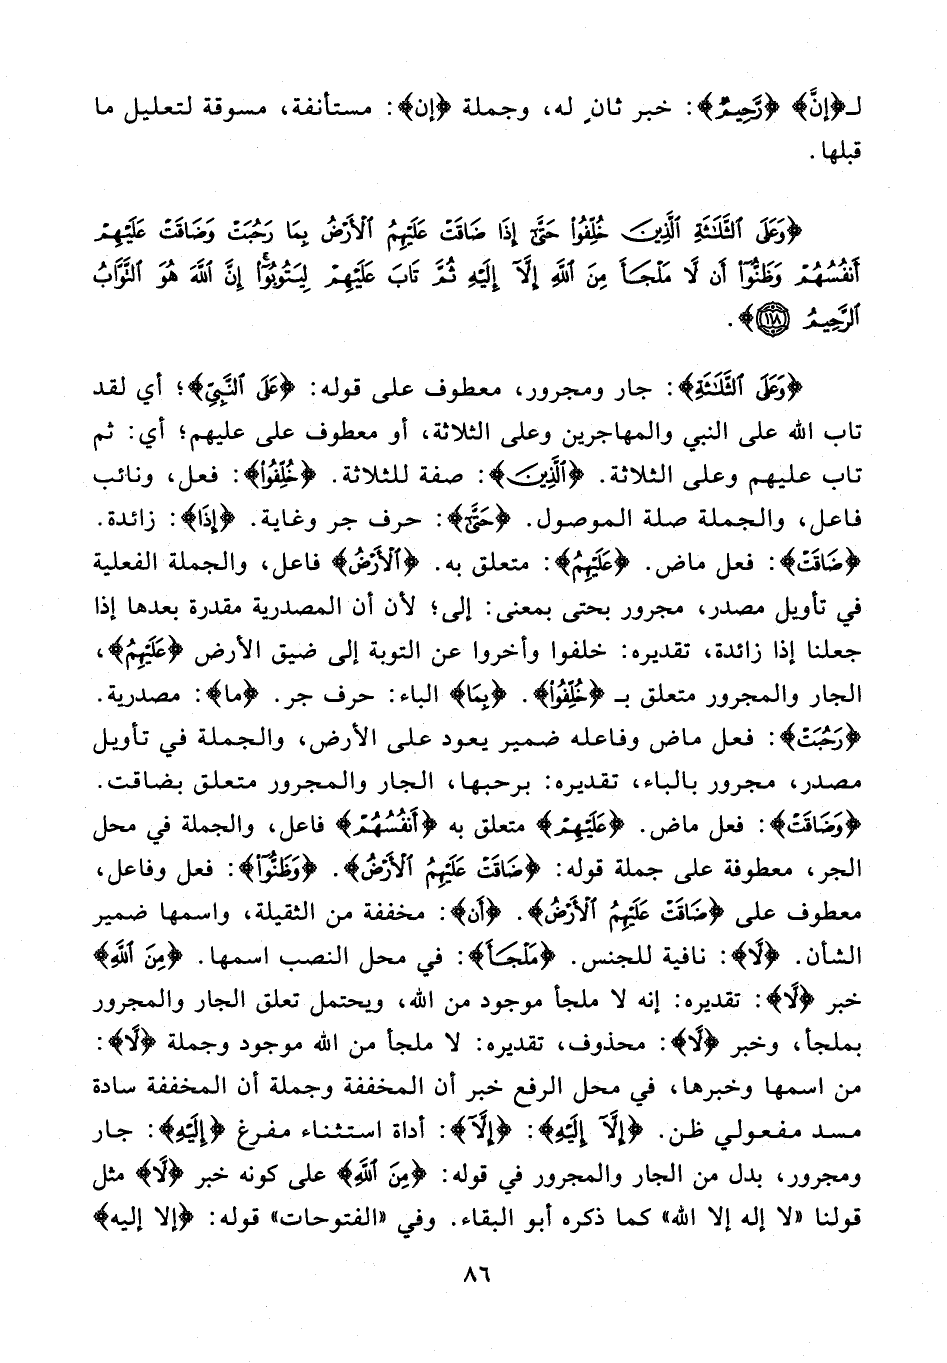 لـ﴿إِنَّ﴾ ﴿رَّحِيمٌ﴾: خبر ثانٍ له، وجملة ﴿إن﴾: مستأنفة، مسوقة لتعليل ما
قبلها.
﴿وَعَلَى ٱلثَّلَٰثَةِ ٱلَّذِينَ خُلِّفُوا۟ حَتَّىٰٓ إِذَا ضَاقَتْ عَلَيْهِمُ ٱلْأَرْضُ بِمَا رَحُبَتْ وَضَاقَتْ عَلَيْهِمْ
أَنفُسُهُمْ وَظَنُّوٓا۟ أَن لَّا مَلْجَأَ مِنَ ٱللَّهِ إِلَّآ إِلَيْهِ ثُمَّ تَابَ عَلَيْهِمْ لِيَتُوبُوٓا۟ إِنَّ ٱللَّهَ هُوَ ٱلتَّوَّابُ
ٱلرَّحِيمُ ١١٨﴾.
﴿وَعَلَى ٱلثَّلَٰثَةِ﴾: جار ومجرور، معطوف على قوله: ﴿عَلَى ٱلنَّبِيِّ﴾؛ أي لقد
تاب الله على النبي والمهاجرين وعلى الثلاثة، أو معطوف على عليهم؛ أي: ثم
تاب عليهم وعلى الثلاثة. ﴿ٱلَّذِينَ﴾: صفة للثلاثة. ﴿خُلِّفُوا۟﴾: فعل، ونائب
فاعل، والجملة صلة الموصول. ﴿حَتَّىٰٓ﴾: حرف جر وغاية. ﴿إِذَا﴾: زائدة.
﴿ضَاقَتْ﴾: فعل ماض. ﴿عَلَيْهِمُ﴾: متعلق به. ﴿ٱلْأَرْضُ﴾ فاعل، والجملة الفعلية
في تأويل مصدر، مجرور بحتى بمعنى: إلى؛ لأن أن المصدرية مقدرة بعدها إذا
جعلنا إذا زائدة، تقديره: خلفوا وأخروا عن التوبة إلى ضيق الأرض ﴿عَلَيْهِمُ﴾،
الجار والمجرور متعلق بـ ﴿خُلِّفُوا۟﴾. ﴿بِمَا﴾ الباء: حرف جر. ﴿ما﴾: مصدرية.
﴿رَحُبَتْ﴾: فعل ماض وفاعله ضمير يعود على الأرض، والجملة في تأويل
مصدر، مجرور بالباء، تقديره: برحبها، الجار والمجرور متعلق بضاقت.
﴿وَضَاقَتْ﴾: فعل ماض. ﴿عَلَيْهِمْ﴾ متعلق به ﴿أَنفُسُهُمْ﴾ فاعل، والجملة في محل
الجر، معطوفة على جملة قوله: ﴿ضَاقَتْ عَلَيْهِمُ ٱلْأَرْضُ﴾. ﴿وَظَنُّوٓا۟﴾: فعل وفاعل،
معطوف على ﴿ضَاقَتْ عَلَيْهِمُ ٱلْأَرْضُ﴾. ﴿أَن﴾: مخففة من الثقيلة، واسمها ضمير
الشأن. ﴿لَّا﴾: نافية للجنس. ﴿مَلْجَأَ﴾: في محل النصب اسمها. ﴿مِنَ ٱللَّهِ﴾
خبر ﴿لَّا﴾: تقديره: إنه لا ملجأ موجود من الله، ويحتمل تعلق الجار والمجرور
بملجأ، وخبر ﴿لَّا﴾: محذوف، تقديره: لا ملجأ من الله موجود وجملة ﴿لَّا﴾:
من اسمها وخبرها، في محل الرفع خبر أن المخففة وجملة أن المخففة سادة
مسد مفعولي ظن. ﴿إِلَّآ إِلَيْهِ﴾: ﴿إِلَّآ﴾: أداة استثناء مفرغ ﴿إِلَيْهِ﴾: جار
ومجرور، بدل من الجار والمجرور في قوله: ﴿مِنَ ٱللَّهِ﴾ على كونه خبر ﴿لَّا﴾ مثل
قولنا «لا إله إلا الله» كما ذكره أبو البقاء. وفي «الفتوحات» قوله: ﴿إلا إليه﴾
٨٦